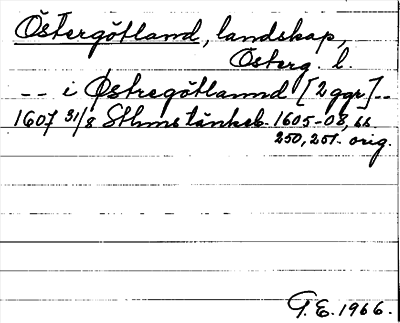 Östergötland, landskap,
Österg. l.
-- i Østregötlannd [2 ggr]--
1607 31/8 Sthms tänkeb. 1605-08, ss.
250, 251. orig.
G.E. 1966.